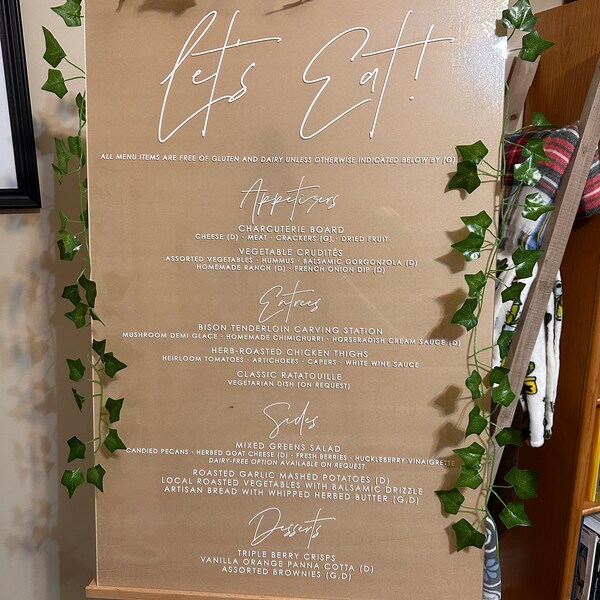 Let's Eat!
ALL MENU ITEMS ARE FREE OF GLUTEN AND DAIRY UNLESS OTHERWISE INDICATED BELOW BY (G)
Appetizers
CHARCUTERIE BOARD
CHEESE (D) - MEAT - CRACKERS (G) - DRIED FRUIT
VEGETABLE CRUDITÉS
ASSORTED VEGETABLES - HUMMUS - BALSAMIC GORGONZOLA (D)
HOMEMADE RANCH (D) - FRENCH ONION DIP (D)
Entrees
BISON TENDERLOIN CARVING STATION
MUSHROOM DEMI GLACE - HOMEMADE CHIMICHURRI - HORSERADISH CREAM SAUCE (D)
HERB-ROASTED CHICKEN THIGHS
HEIRLOOM TOMATOES - ARTICHOKES - CAPERS - WHITE WINE SAUCE
CLASSIC RATATOUILLE
VEGETARIAN DISH (ON REQUEST)
Sides
MIXED GREENS SALAD
CANDIED PECANS - HERBED GOAT CHEESE (D) - FRESH BERRIES - HUCKLEBERRY VINAIGRETTE
DAIRY-FREE OPTION AVAILABLE ON REQUEST.
ROASTED GARLIC MASHED POTATOES (D)
LOCAL ROASTED VEGETABLES WITH BALSAMIC DRIZZLE
ARTISAN BREAD WITH WHIPPED HERBED BUTTER (G,D)
Desserts
TRIPLE BERRY CRISPS
VANILLA ORANGE PANNA COTTA (D)
ASSORTED BROWNIES (G,D)